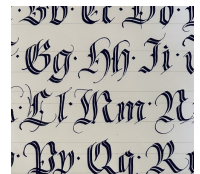 Bb · Cc · Dd ·
Gg · Hh · Ii ·
Ll · Mm · N
Pp · Qq · R